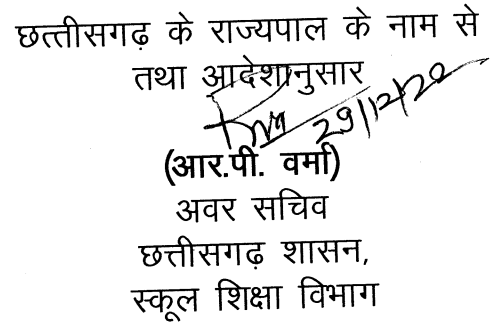 छत्तीसगढ़ के राज्यपाल के नाम से
तथा आदेशानुसार
29/12/20
(आर.पी. वर्मा)
अवर सचिव
छत्तीसगढ़ शासन,
स्कूल शिक्षा विभाग